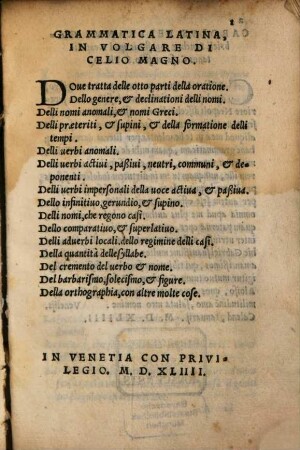 GRAMMATICA LATINA,
IN VOLGARE DI
CELIO MAGNO.
Doue tratta delle otto parti della oratione.
Dello genere, & declinationi delli nomi.
Delli nomi anomali, & nomi Greci.
Delli præteriti, & supini, & della formatione delli
tempi.
Delli uerbi anomali.
Delli uerbi actiui, paßiui, neutri, communi, & de-
ponenti.
Delli uerbi impersonali della uoce actiua, & paßiua.
Dello infinitiuo, gerundio, & supino.
Delli nomi, che regono casi.
Dello comparatiuo, & superlatiuo.
Delli aduerbi locali. dello regimine delli casi.
Della quantità delle syllabe.
Del cremento del uerbo & nome.
Del barbarismo, solecismo, & figure.
Della orthographia, con altre molte cose.
IN VENETIA CON PRIVI-
LEGIO. M. D. XLIIII.